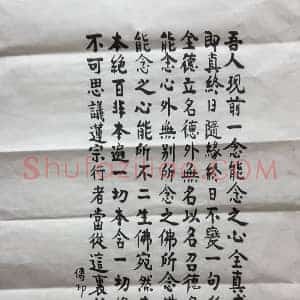 吾人現前一念能念之心全真
即真終日隨緣終日不變一句
全德立名德外無名以名召德
能念心外無別所念之佛所念
能念之心能所不二生佛宛然
本絕百非本遍一切本含一切
不可思議蓮宗行者當從這裏
傳印